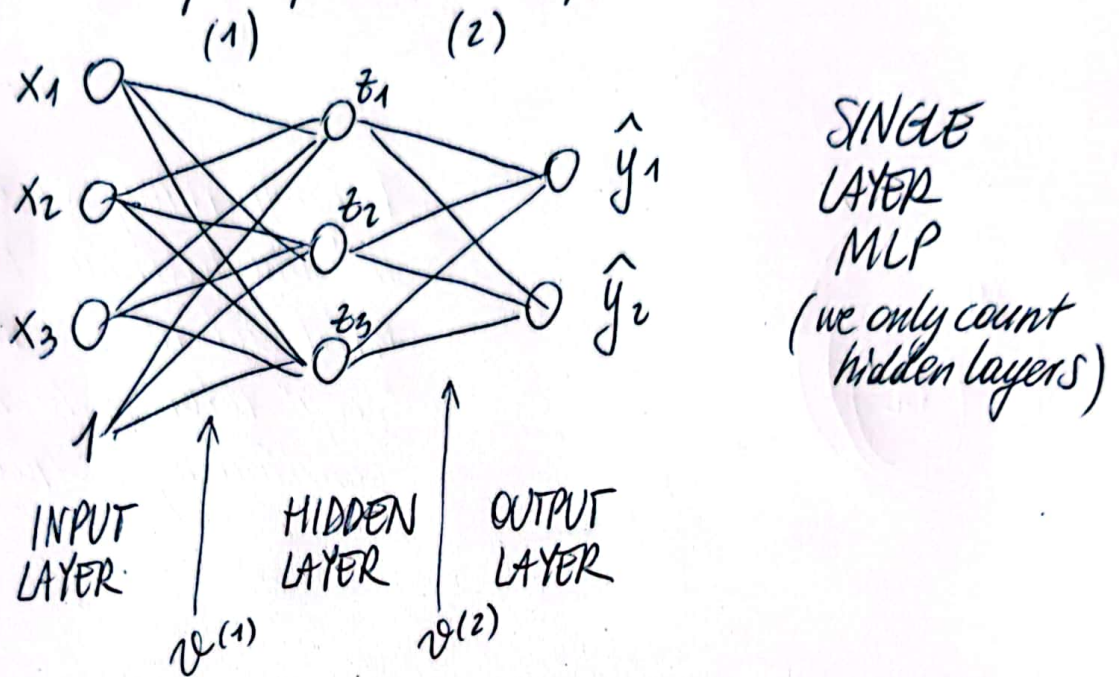 (1) (2)
x1
z1
ŷ1
x2
z2
x3
z3
ŷ2
1
SINGLE
LAYER
MLP
(we only count
hidden layers)
INPUT
LAYER
HIDDEN
LAYER
OUTPUT
LAYER
ϑ(1)
ϑ(2)